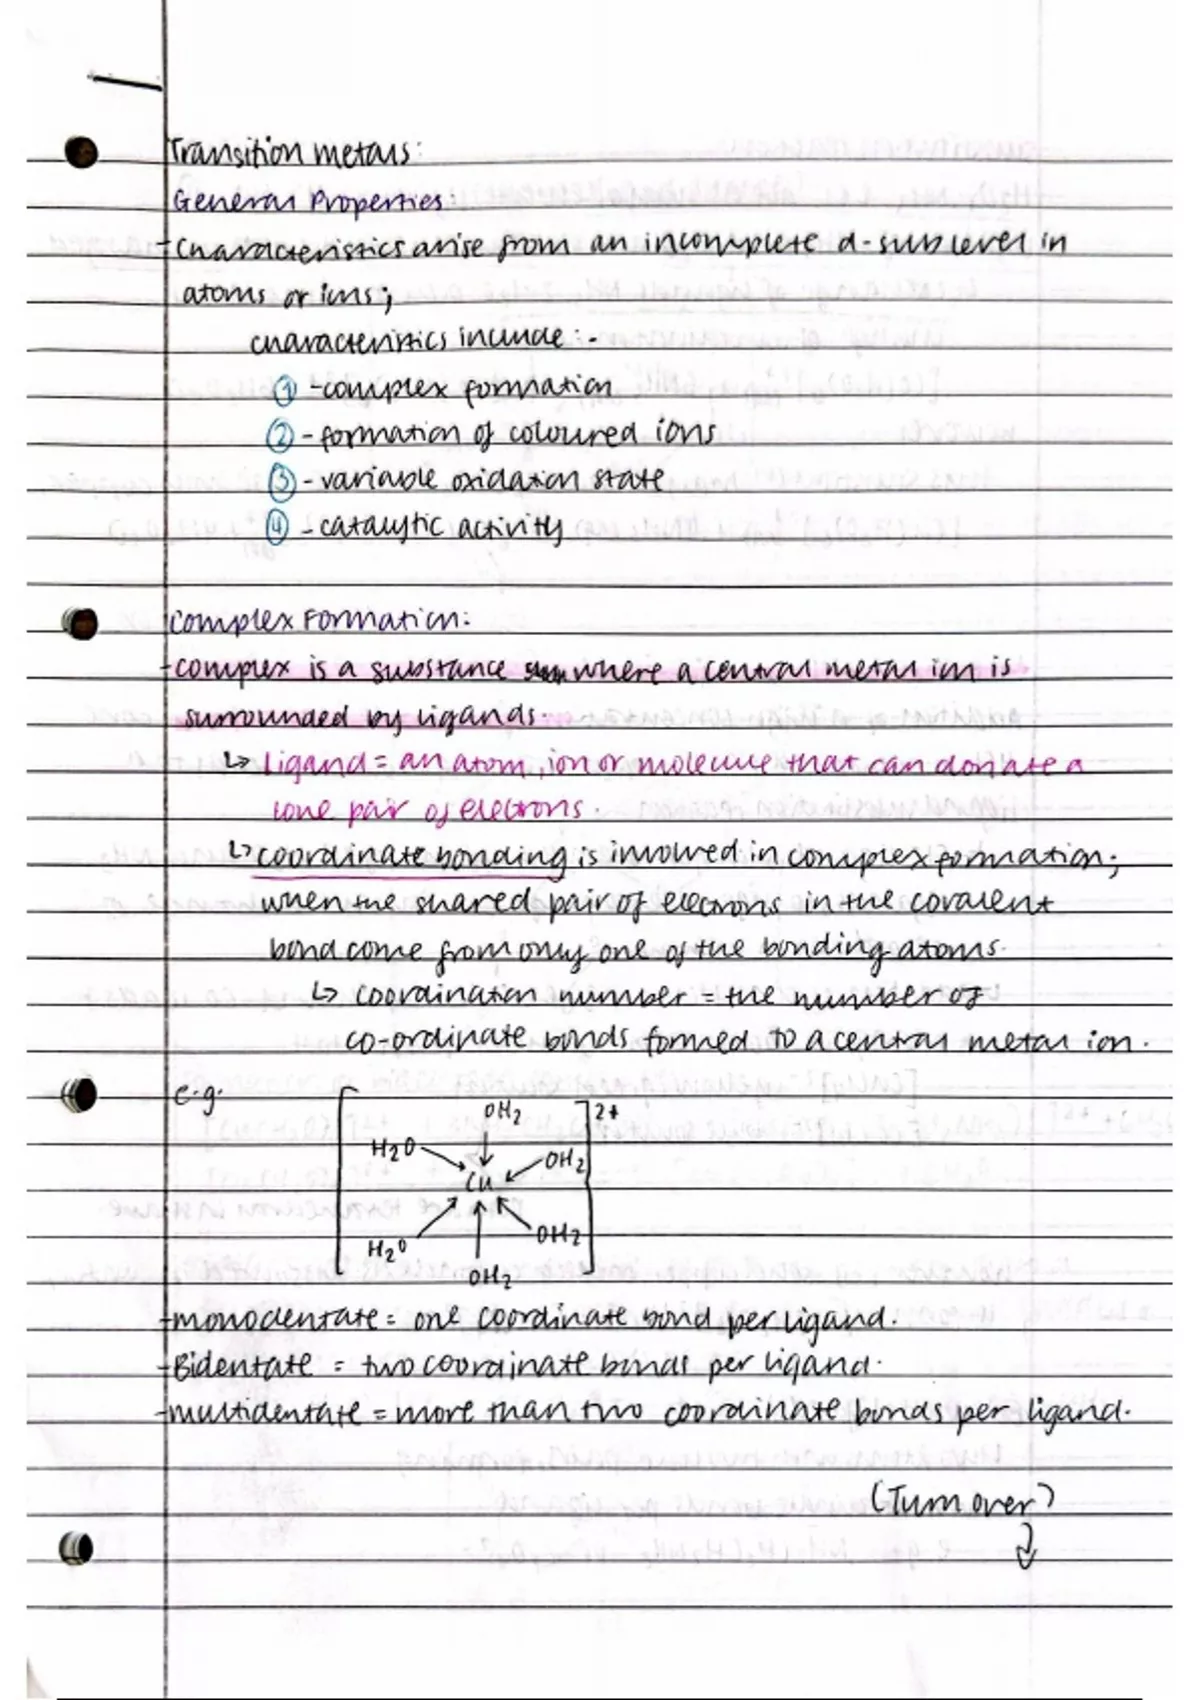 Transition metals:
General Properties:
- Characteristics arise from an incomplete d-sublevel in
atoms or ions;
characteristics include:-
① - complex formation
② - formation of coloured ions
③ - variable oxidation state
④ - catalytic activity
Complex Formation:
- complex is a substance where a central metal ion is
surrounded by ligands.
↳ Ligand = an atom, ion or molecule that can donate a
lone pair of electrons.
↳ coordinate bonding is involved in complex formation;
when the shared pair of electrons in the covalent
bond come from only one of the bonding atoms.
↳ coordination number = the number of
co-ordinate bonds formed to a central metal ion.
e.g.
OH2 2+
H2O OH2
Cu
H2O OH2
OH2
- monodentate = one coordinate bond per ligand.
- Bidentate = two coordinate bonds per ligand.
- multidentate = more than two coordinate bonds per ligand.
(Turn over)